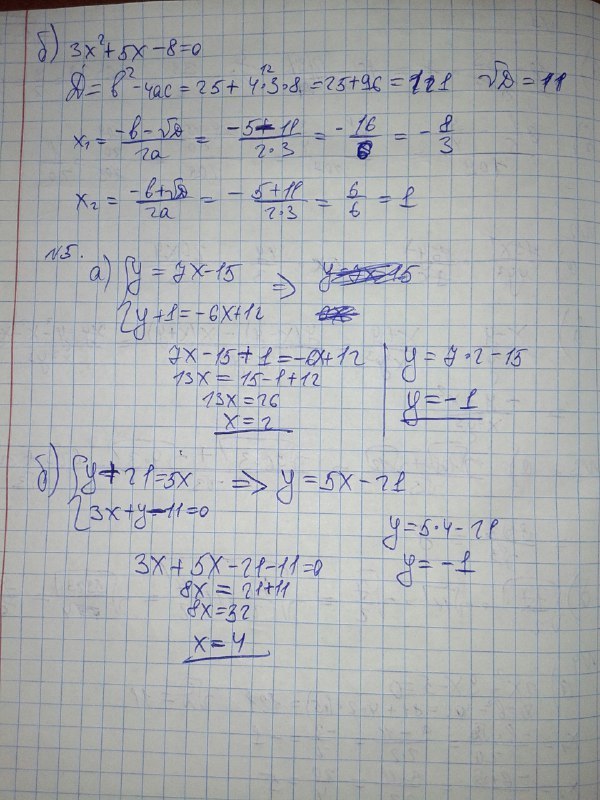 б) 3x²+5x-8=0
D = b²-4ac = 25+4·3·8 = 25+96 = 121 √D = 11
12
x₁ = (-b-√D)/2a = (-5-11)/2·3 = -16/6 = -8/3
x₂ = (-b+√D)/2a = -(5+11)/2·3 = 6/6 = 1
№5.
а) {y = 7x-15 ⇒
{y+1=-6x+12
7x-15+1=-6x+12 | y=7·2-15
13x = 15-1+12
13x=26 y=-1
x=2
б) {y+21=5x ⇒ y=5x-21
{3x+y-11=0
y=5·4-21
3x+5x-21-11=0 y=-1
8x = 21+11
8x=32
x=4